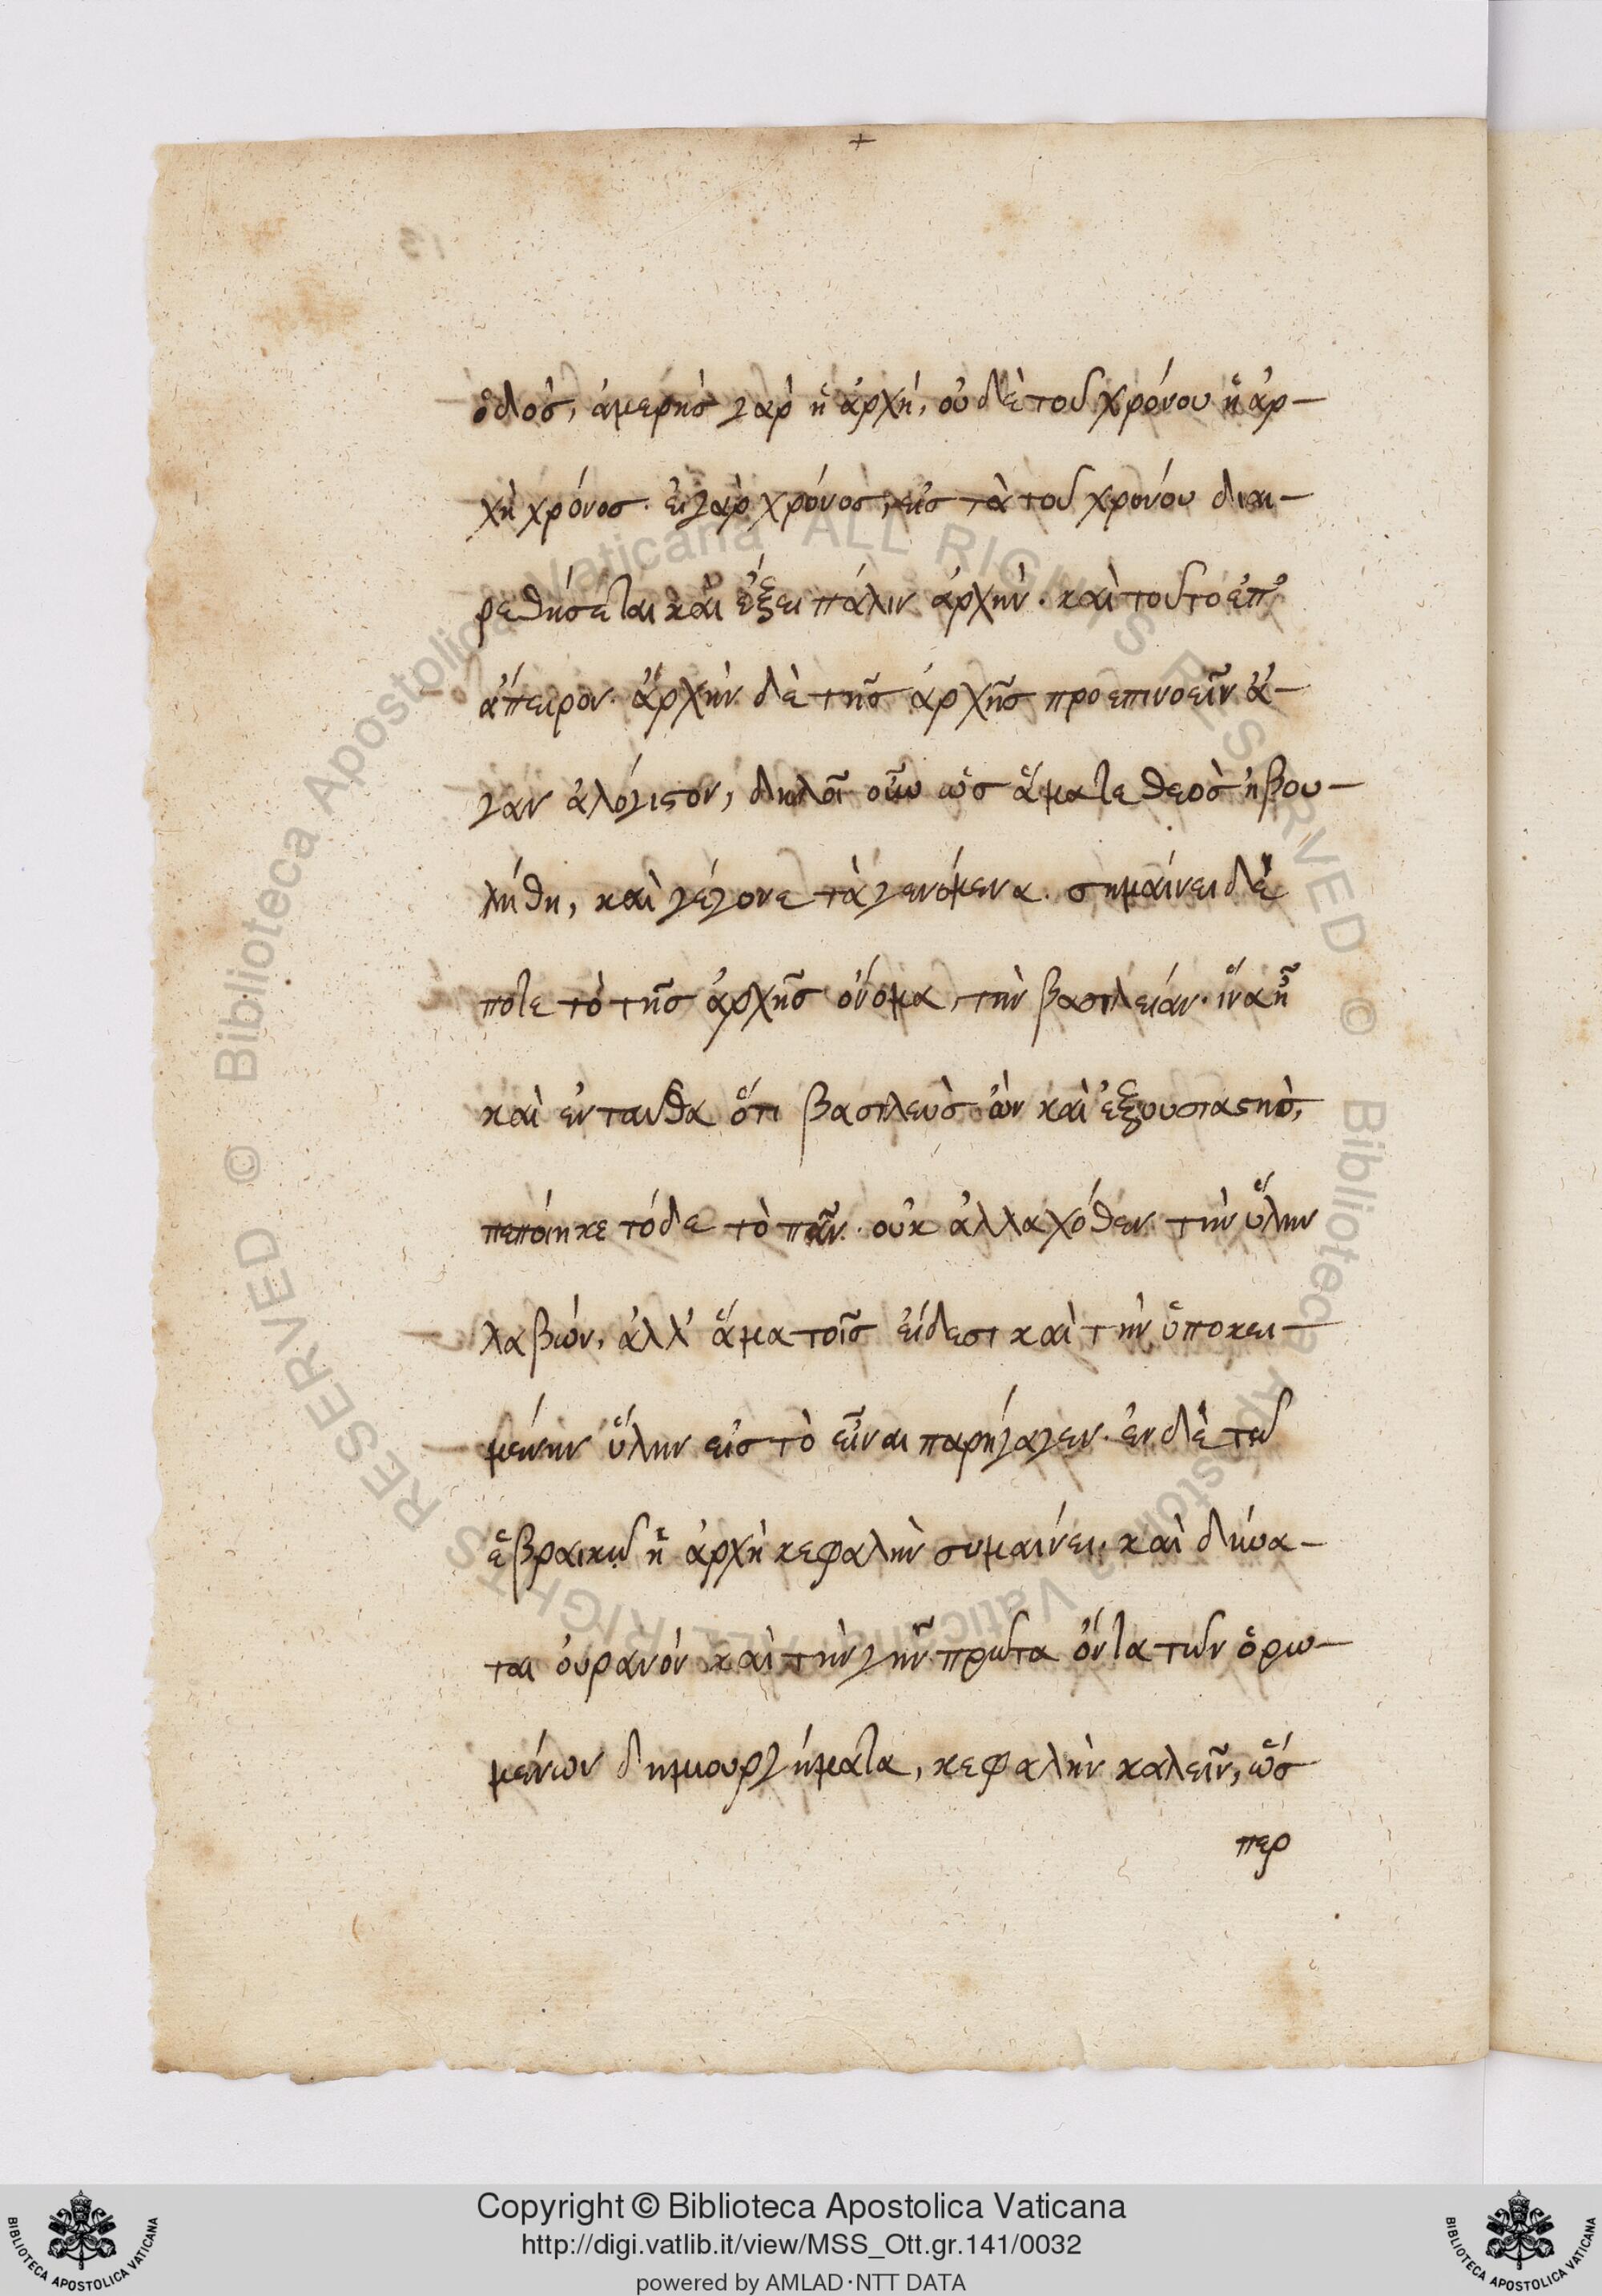 +
ὁδὸς, ἀμερὴς γὰρ ἡ ἀρχή, οὐδὲ τοῦ χρόνου ἡ ἀρ-
χὴ χρόνος. εἰ γὰρ χρόνος, εἰς τὰ τοῦ χρόνου διαι-
ρεθήσεται καὶ ἕξει πάλιν ἀρχήν. καὶ τοῦτο ἐπ'
ἄπειρον. ἀρχὴν δὲ τῆς ἀρχῆς προεπινοεῖν ἄ-
γαν ἀλόγιστον, δηλοῖ οὖν ὡς ἅμα τε θεὸς ἠβου-
λήθη, καὶ γέγονε τὰ γενόμενα. σημαίνει δέ
ποτε τὸ τῆς ἀρχῆς ὄνομα, τὴν βασιλείαν. ἵνα ᾖ
καὶ ἐνταυθα ὅτι βασιλεὺς ὢν καὶ ἐξουσιαστὴς,
πεποίηκε τόδε τὸ πᾶν. οὐκ ἀλλαχόθεν τὴν ὕλην
λαβὼν, ἀλλ' ἅμα τοῖς εἴδεσι καὶ τὴν ὑποκει-
μένην ὕλην εἰς τὸ εἶναι παρήγαγεν. ἐν δὲ τῶ
ἑβραικῶ ἡ ἀρχὴ κεφαλὴν συμαίνει. καὶ δύνα-
ται οὐρανὸν καὶ τὴν γῆν πρῶτα ὄντα τῶν ὁρω-
μένων δημιουργήματα, κεφαλὴν καλεῖν, ὥσ
περ
Copyright © Biblioteca Apostolica Vaticana
http://digi.vatlib.it/view/MSS_Ott.gr.141/0032
powered by AMLAD·NTT DATA